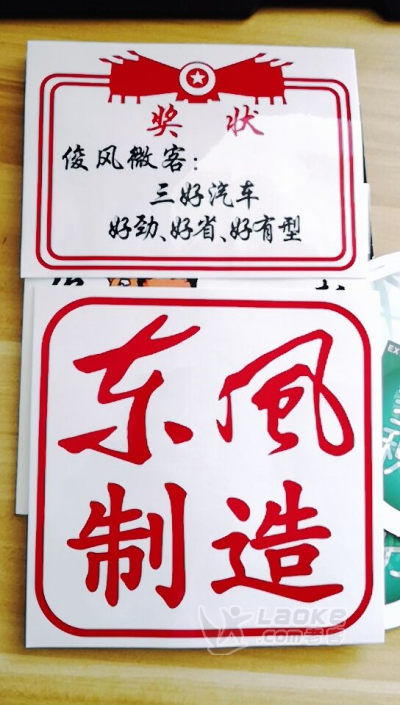 奖状
俊风微客：
三好汽车
好劲、好省、好有型
东风
制造
EX
Laoke
.com